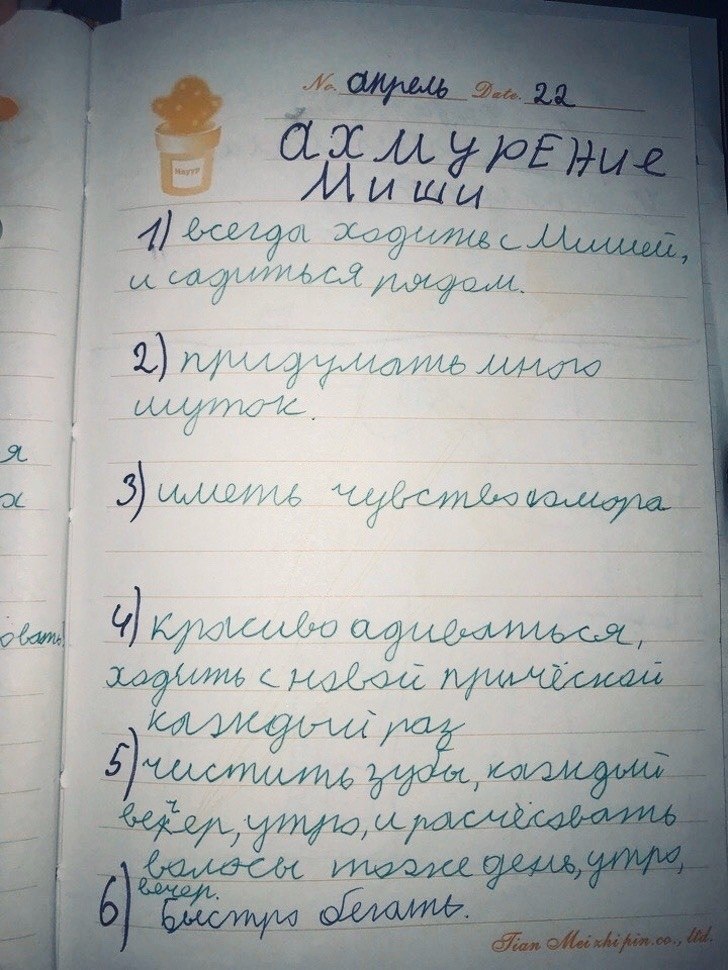 No. апрель Date. 22
ахмурение
Миши
1) всегда ходить с Мишей,
и садиться рядом.
2) придумать много
шуток.
3) иметь чувство юмора
4) красиво адиваться,
ходить с новой причёской
каждый раз
5) чистить зубы, каждый
вечер, утро, и расчёсовать
волосы тоже день, утро,
вечер.
6) Быстро бегать.
Tian Meizhipin.co., ltd.
я
х
овать